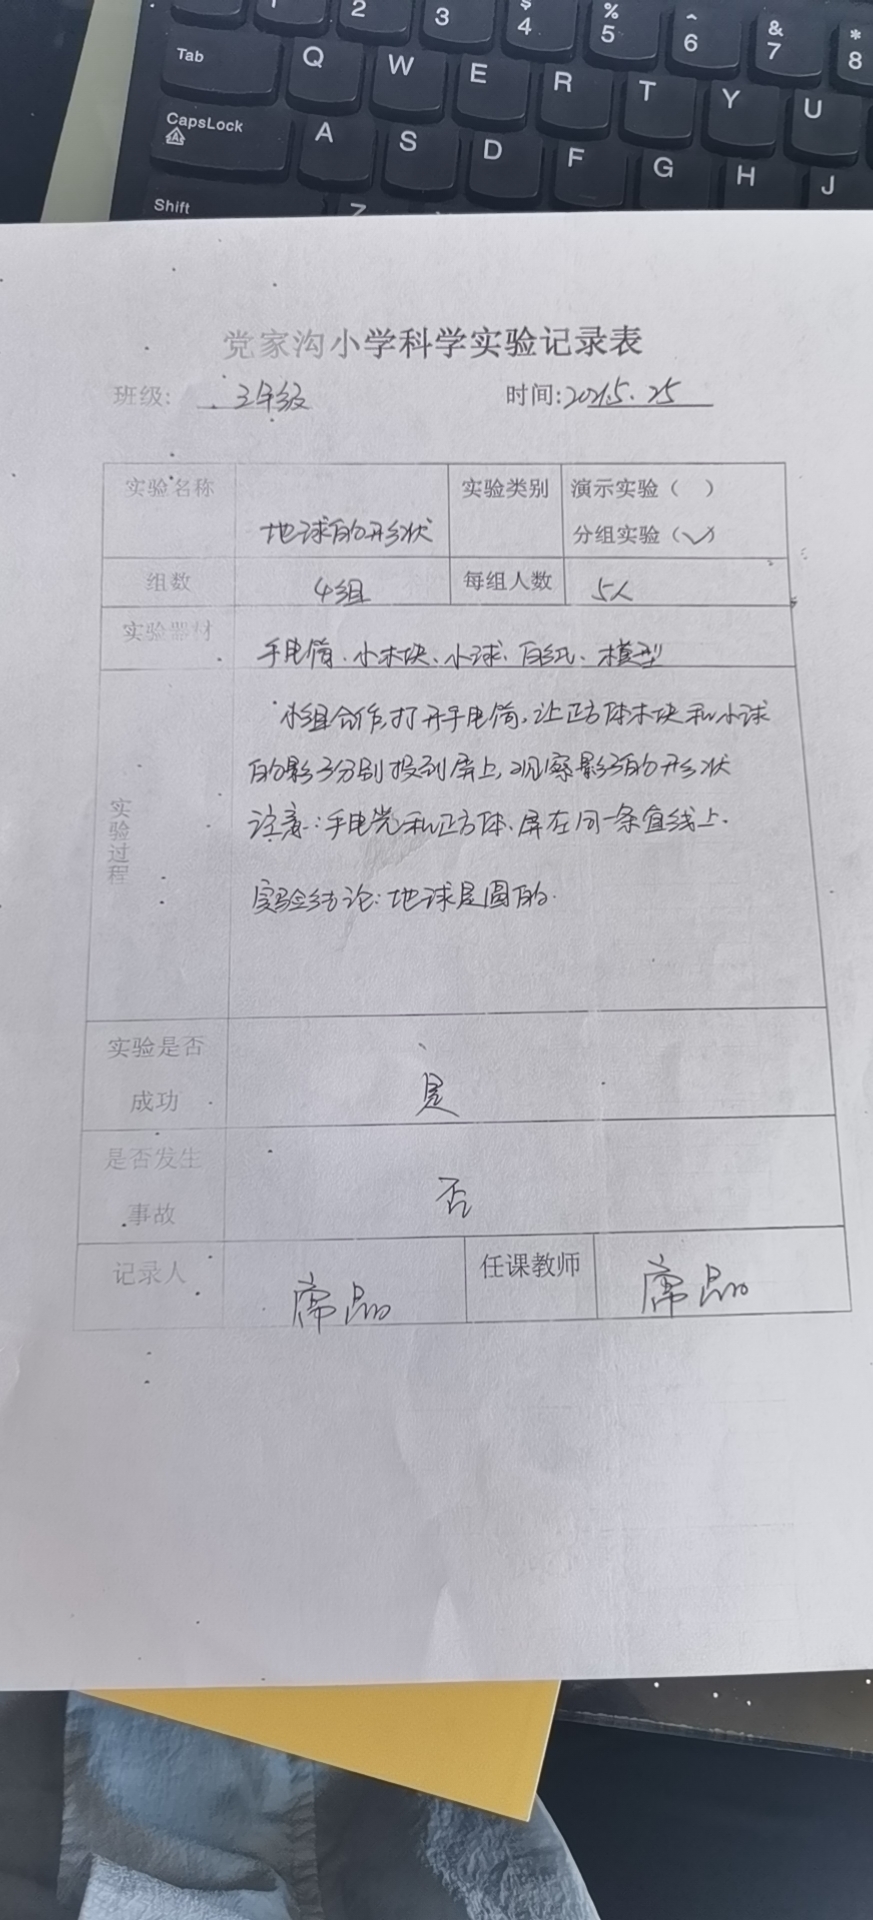 1 2 3 $ 4 % 5 ^ 6 & 7 * 8
Tab Q W E R T Y U
CapsLock A S D F G H J
Shift Z
党家沟小学科学实验记录表
班级: 三年级 时间:2021.5.25
实验名称 地球的形状 实验类别 演示实验（ ）
分组实验（✓）
组数 4组 每组人数 5人
实验器材 手电筒、小木块、小球、白纸、模型
实验过程
小组合作,打开手电筒,让正方体木块和小球
的影子分别投到屏上,观察影子的形状
注意:手电光和正方体、屏在同一条直线上.
实验结论:地球是圆的.
实验是否
成功 是
是否发生
事故 否
记录人 席晶 任课教师 席晶